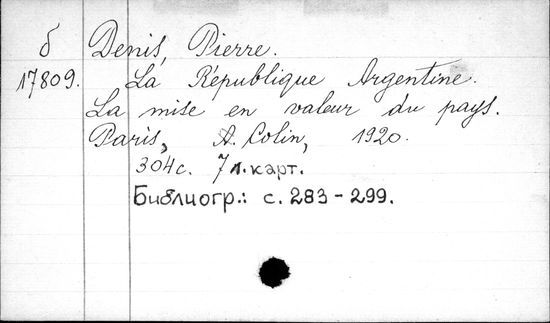 б Denis, Pierre.
17809. La République Argentine.
La mise en valeur du pays.
Paris, A. Colin, 1920.
304с. 7 л. карт.
Библиогр.: с. 283-299.